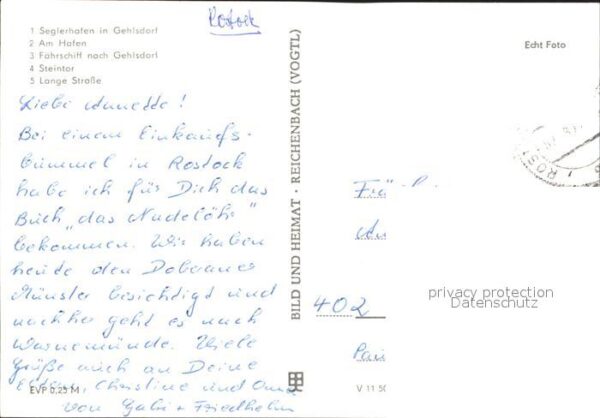 Rostock
1 Seglerhafen in Gehlsdorf
2 Am Hafen
3 Fährschiff nach Gehlsdorf
4 Steintor
5 Lange Straße
Echt Foto
Liebe Annette!
Bei einem Einkaufs-
bummel in Rostock
habe ich für Dich das
Buch „das Nadelöhr“
bekommen. Wir haben
heute den Doberaner
Münster besichtigt und
nachher geht es nach
Warnemünde. Viele
Grüße auch an Deine
Eltern, Christine und Oma
von Gabi + Friedhelm
EVP 0,25 M
BILD UND HEIMAT · REICHENBACH (VOGTL)
V 11 50
ROST
402
privacy protection
Datenschutz